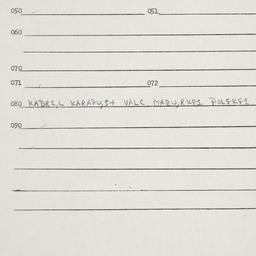 050 051
060
070
071 072
080 KADRI,L KARAPU,S+ VALC MAZU,RKE1 POLEKE1
090